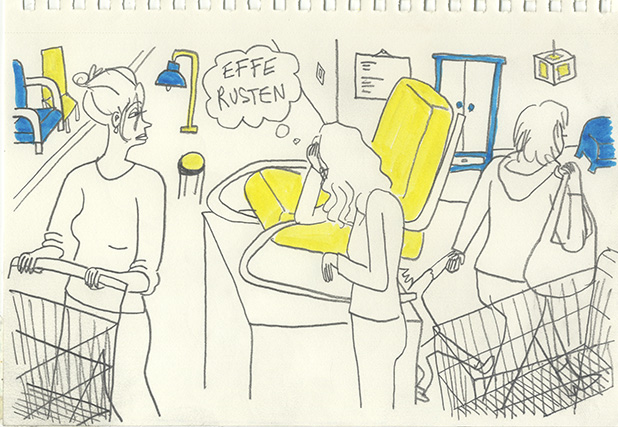 EFFE
RUSTEN